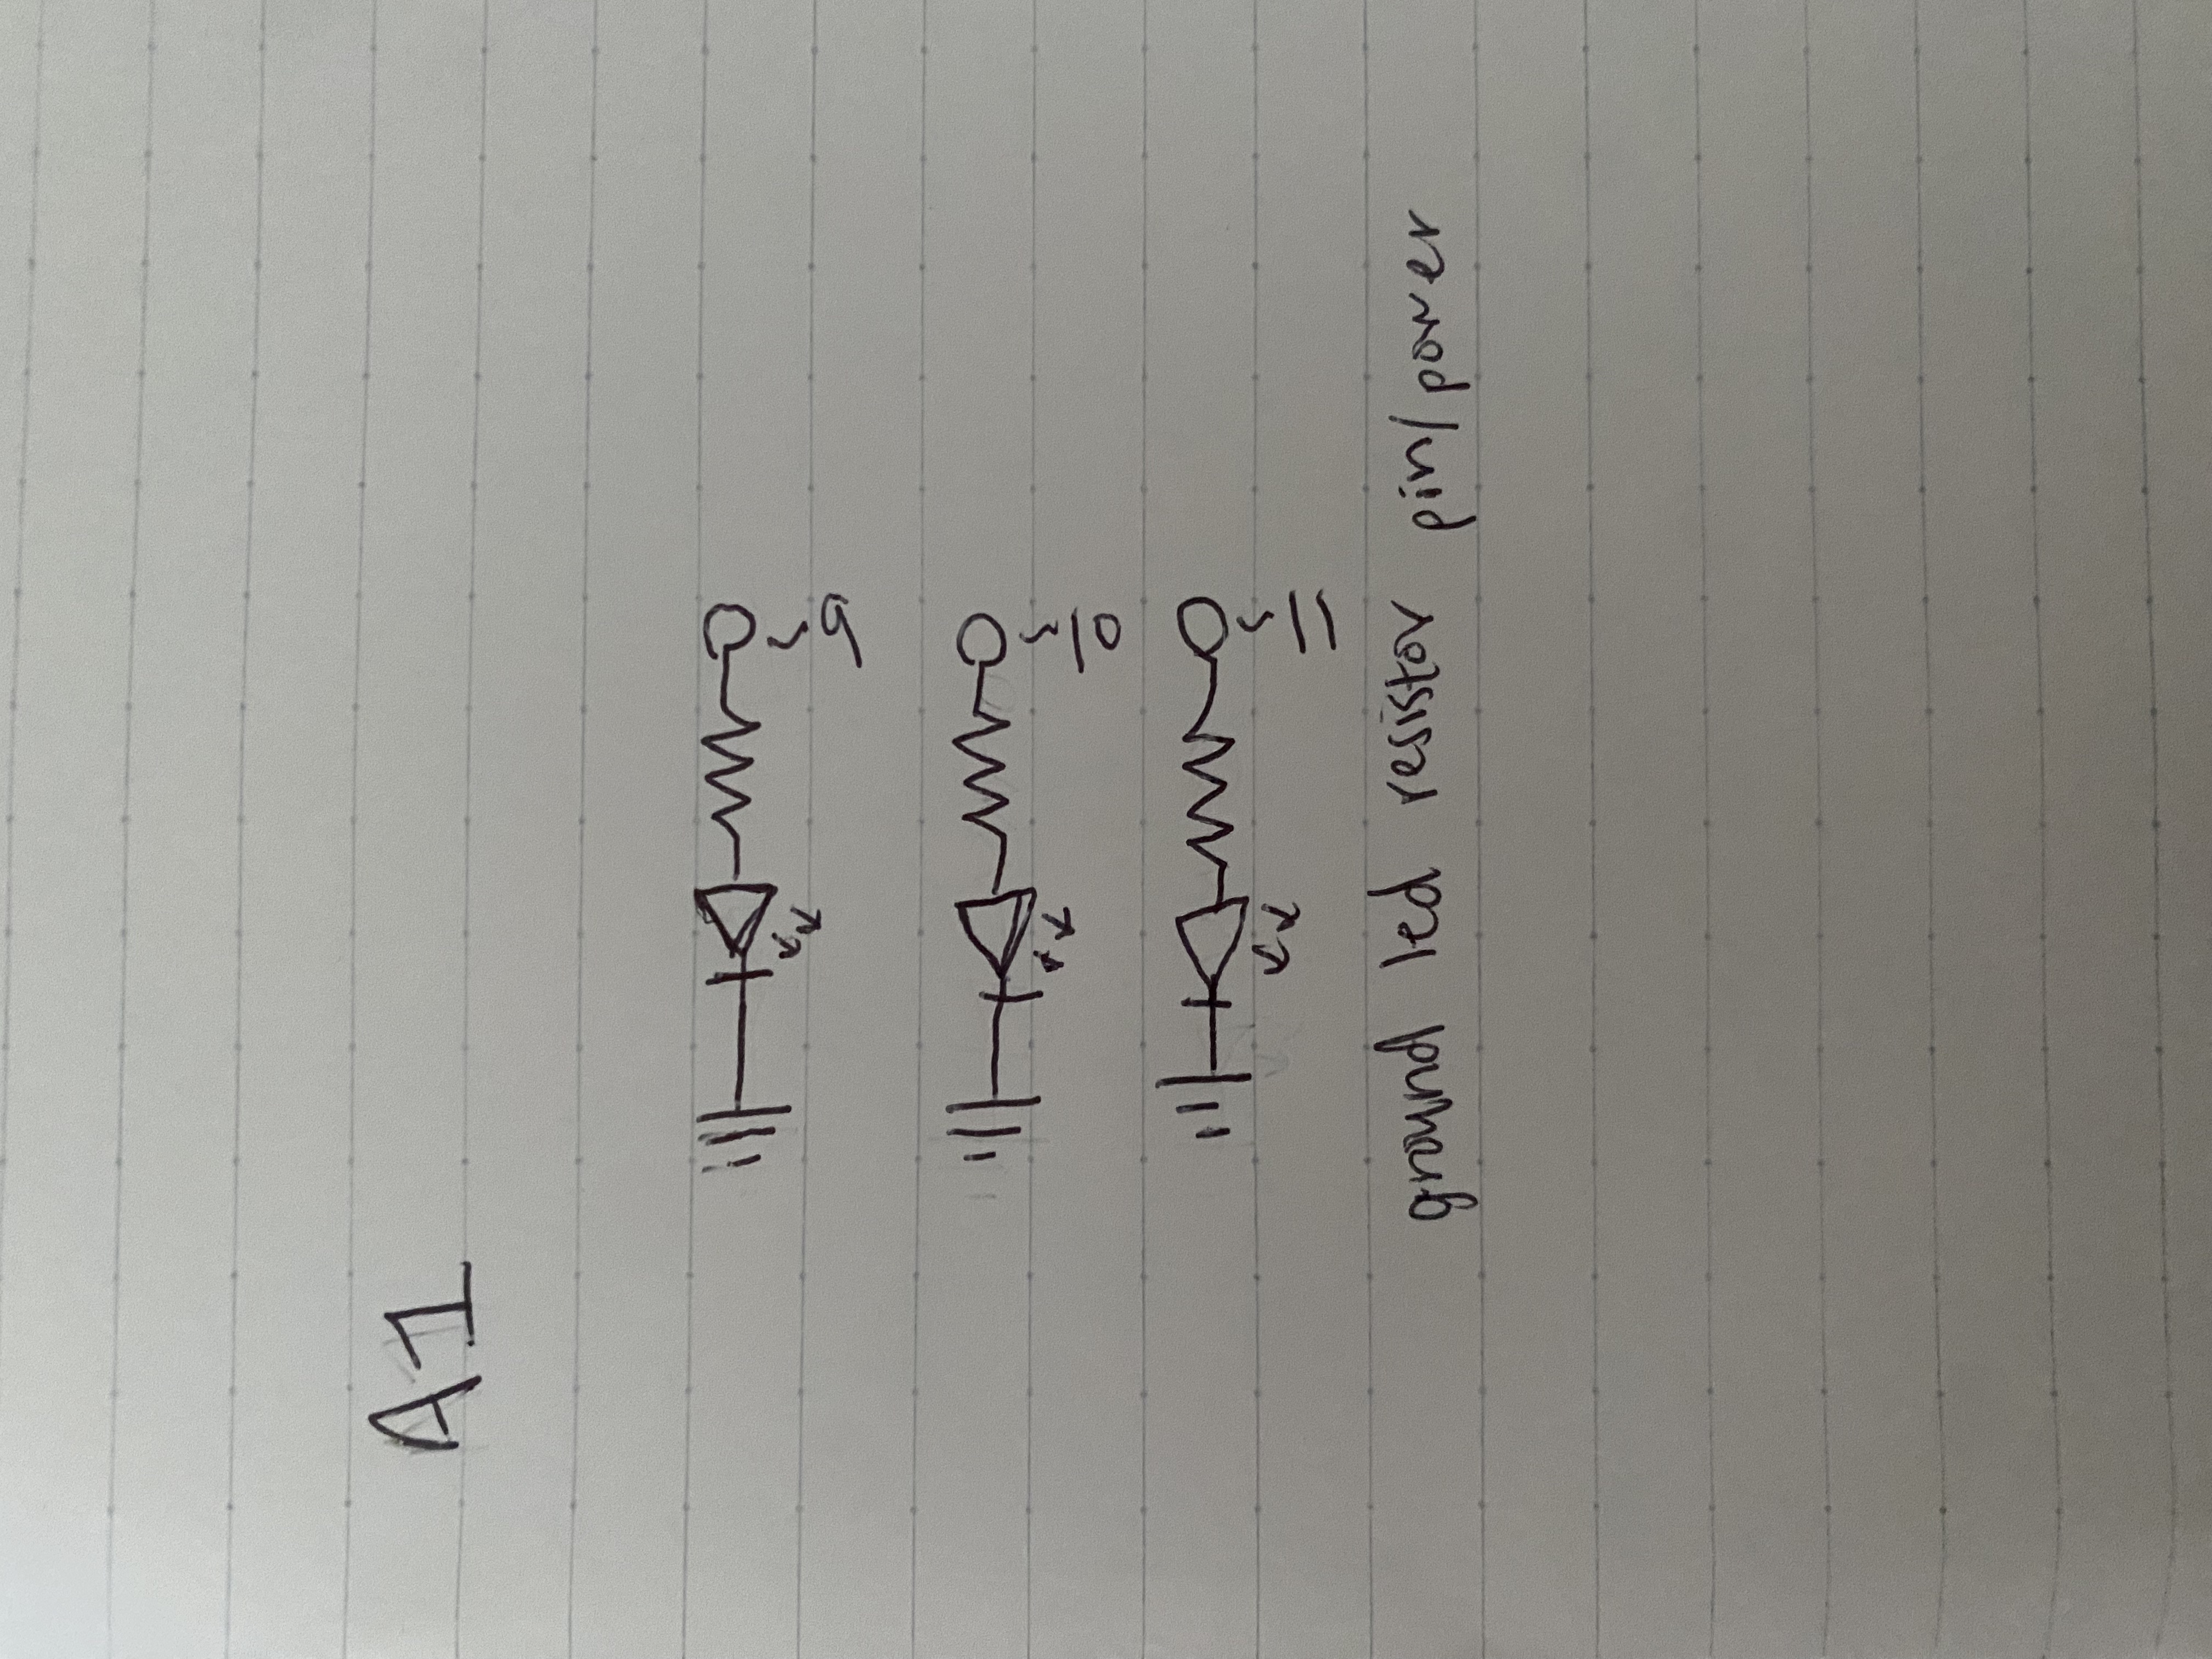 A1
~9
~10
~11
ground led resistor pin/power